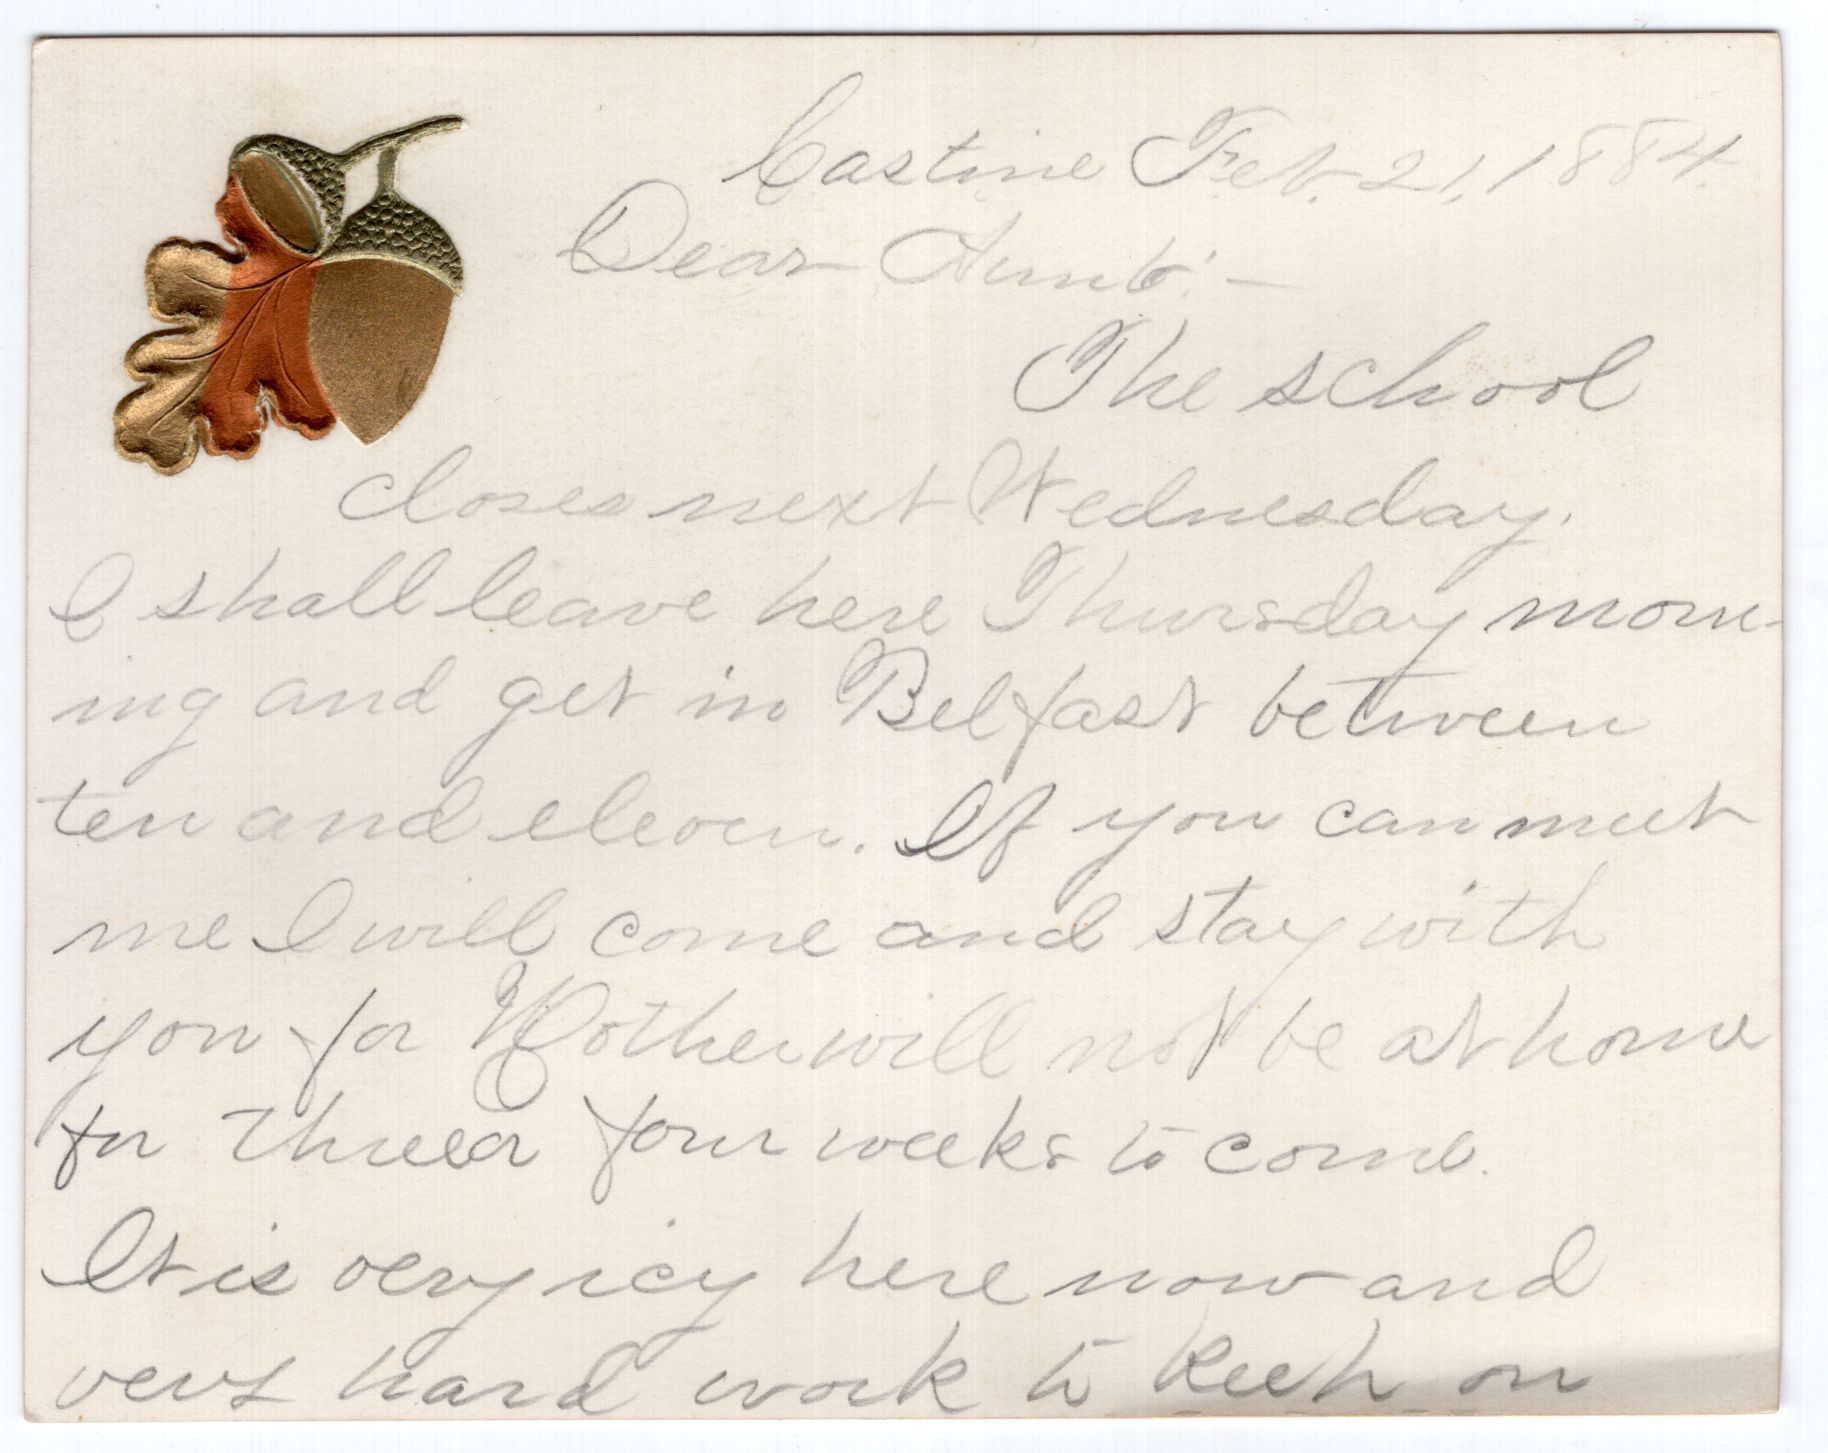 Castine Feb. 21, 1884.
Dear Aunt:—
The school
closes next Wednesday.
I shall leave here Thursday morn-
ing and get in Belfast between
ten and eleven. If you can meet
me I will come and stay with
you for Mother will not be at home
for three or four weeks to come.
It is very icy here now and
very hard work to keep on